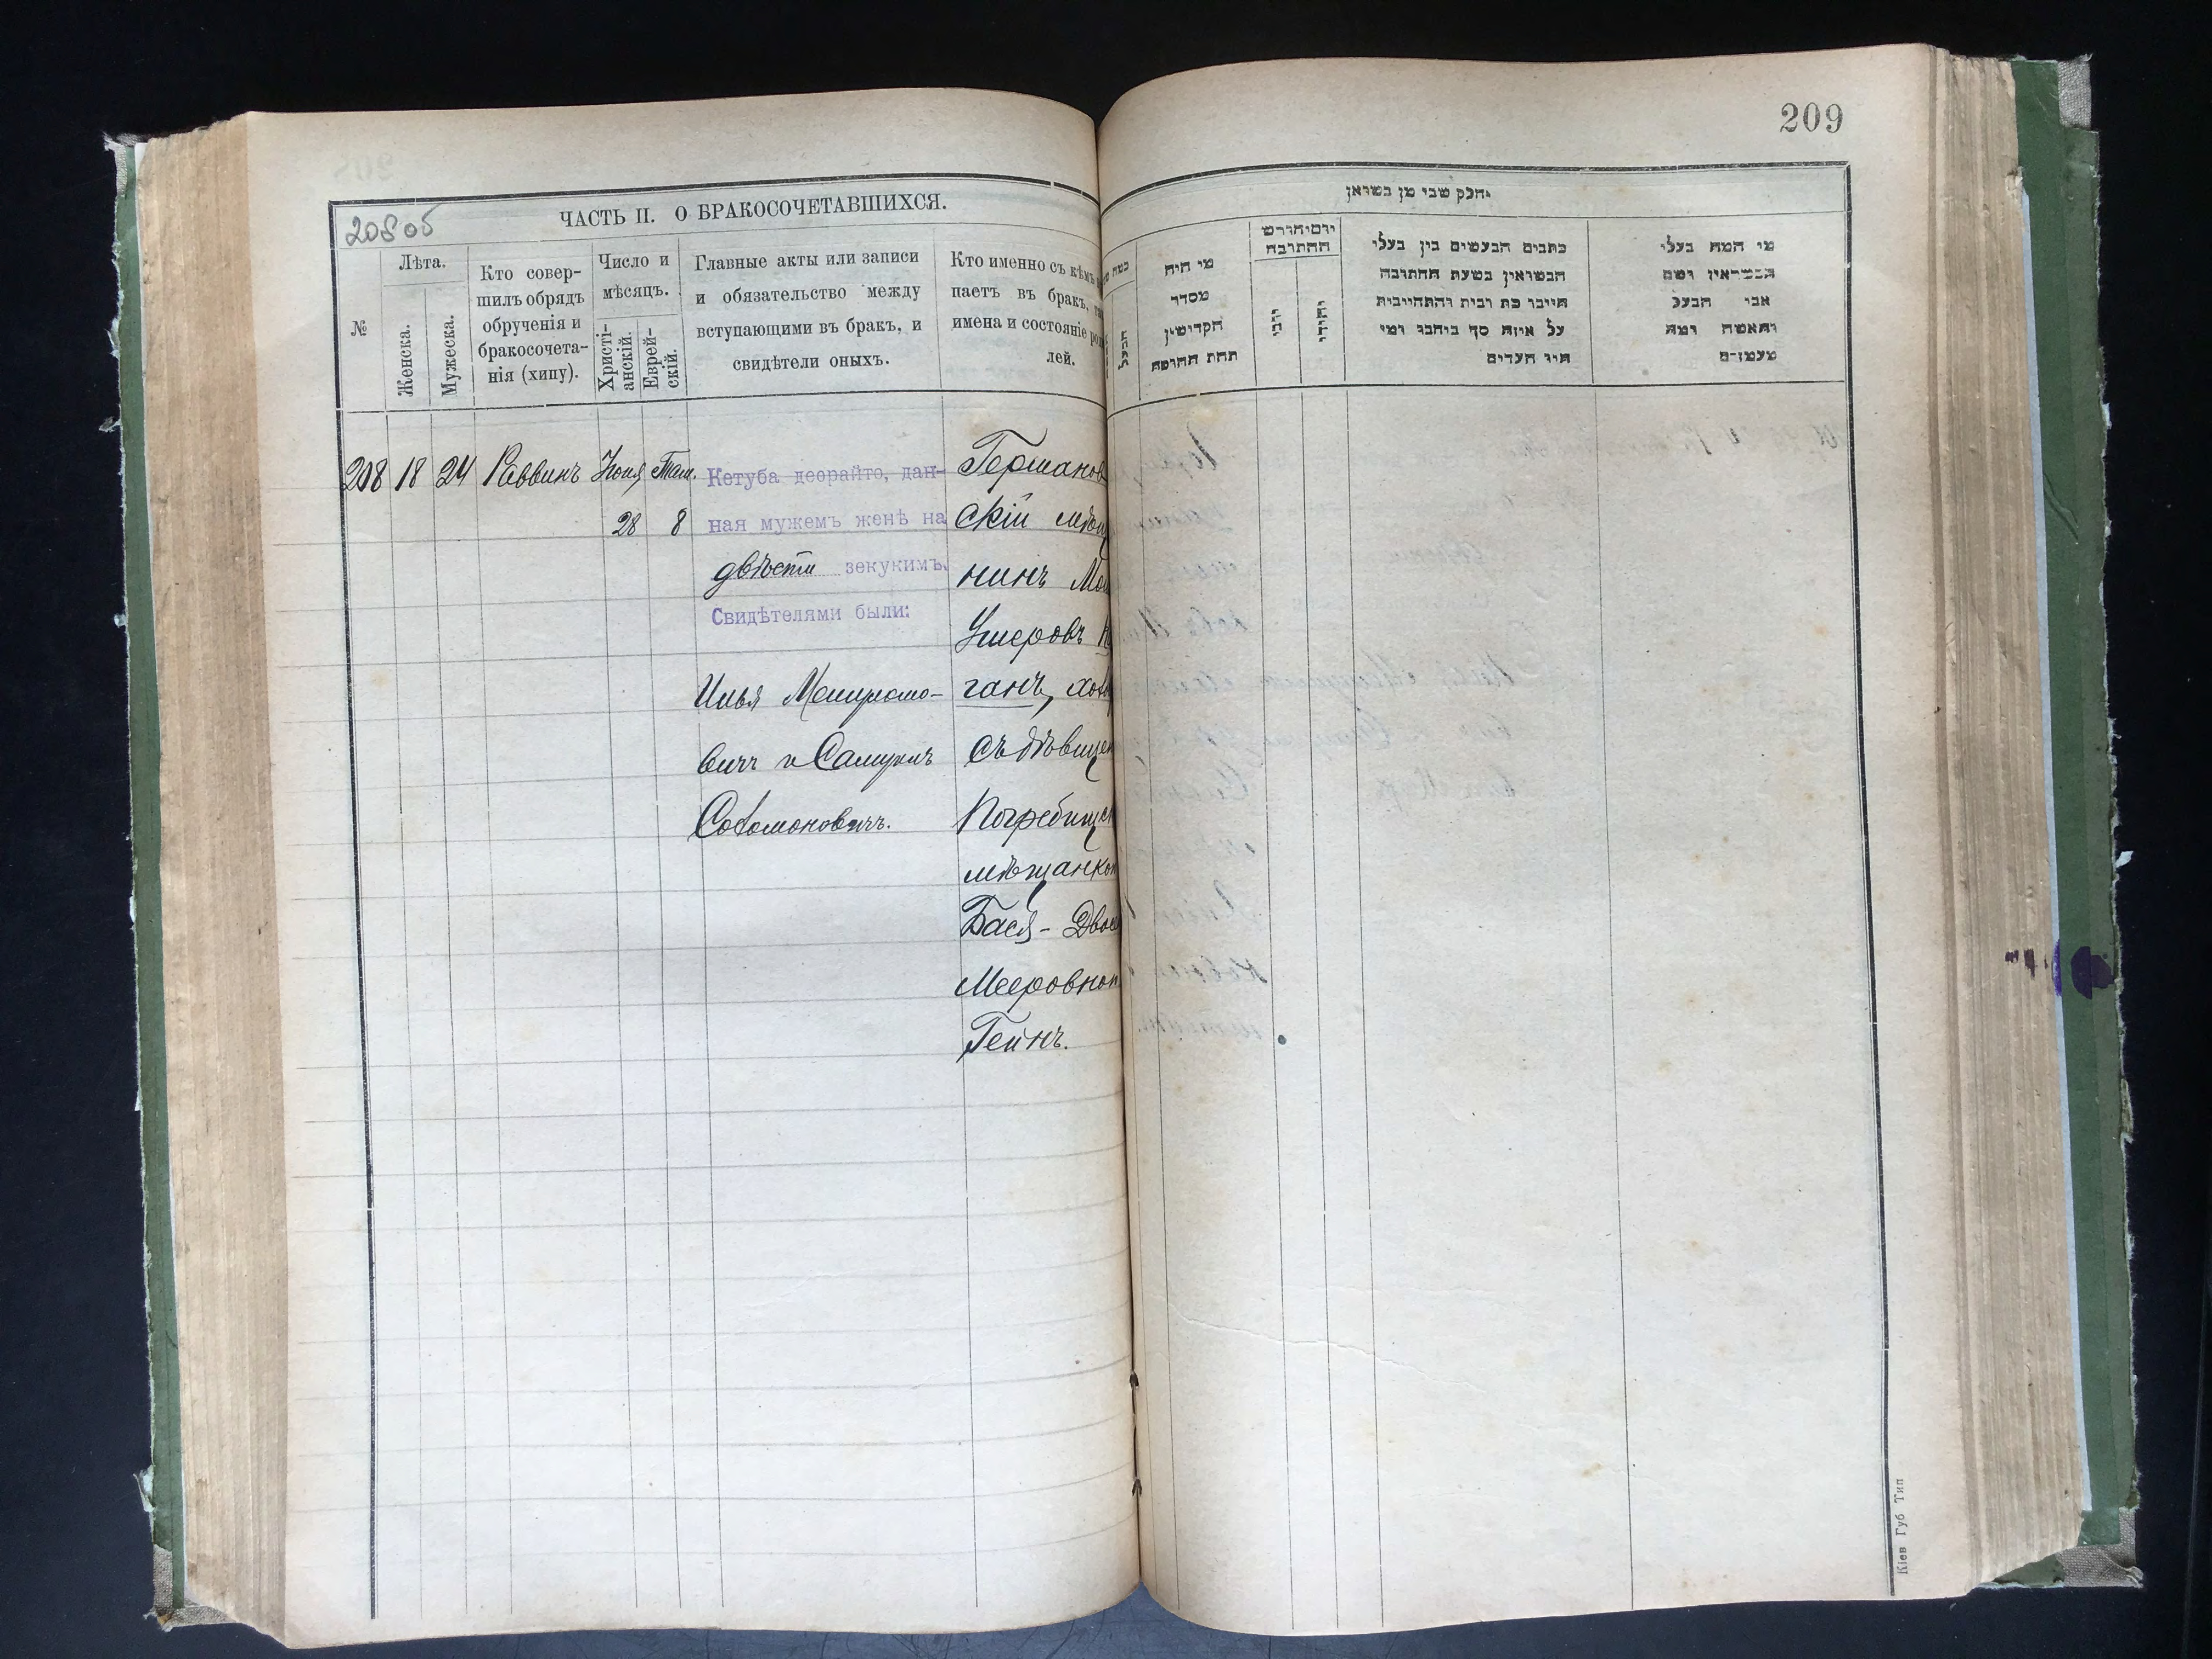 209
208 об
ЧАСТЬ II. О БРАКОСОЧЕТАВШИХСЯ.
№
Лѣта.
Женска.
Мужеска.
Кто совер-
шилъ обрядъ
обрученія и
бракосочета-
нія (хипу).
Число и
мѣсяцъ.
Христі-
анскій.
Еврей-
скій.
Главные акты или записи
и обязательство между
вступающими въ бракъ, и
свидѣтели оныхъ.
Кто именно съ кѣмъ
паетъ въ бракъ,
имена и состояніе
лей.
208 18 24 Раввинъ Іюня Там.
28 8
Кетуба деорайто, дан-
ная мужемъ женѣ на
двѣсти зекукимъ.
Свидѣтелями были:
Илья
вичъ и Самуилъ
Соломоновичъ.
Германов
скій мѣщ
нинъ
Ушеровъ
ганъ, хол
съ дѣвицей
Погребищс
мѣщанкой
Бася-Двос
Мееровной
Гейнъ.
חלק שני מן נשואין
מי היה
מסדר
הקדושין
תחת החופה
הבעל
יום וחודש
החתונה
יוני
יהודי
כתבים הנעשים בין בעלי
הנשואין בשעת החתונה
היינו כת ובית והתחייבות
על איזה סך ביניהם ומי
היו העדים
מי המה בעלי
הנשואין ושם
אבי הבעל
והאשה ומה
מעמדם
Кіев Губ Тип